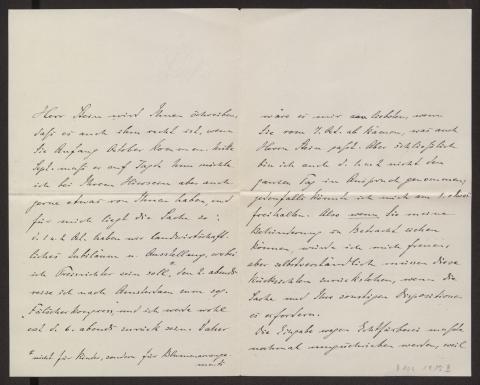 Herr Stern wird Ihnen schreiben,
daß es auch ihm recht ist, wenn
Sie Anfang October kommen. Ende
Sept. muß er auf Jagd. Nun möchte
ich bei Ihrem Hiersein aber auch
gerne etwas von Ihnen haben, und
für mich liegt die Sache so:
d. 1 u 2 Okt. haben wir landwirtschaft-
liches Jubiläum u. Ausstellung, wobei
ich Preisrichter sein soll,* den 2. abends
reise ich nach Amsterdam zum sog.
"Fälscherkongress" und ich werde wohl
erst d. 6. abends zurück sein. Daher
* nicht für Rinder, sondern für Blumenarrange-
ments
wäre es mir am liebsten, wenn
Sie vom 7. Okt. ab kämen, was auch
Herrn Stern paßt. Aber schließlich
bin ich auch d. 1 u 2 nicht den
ganzen Tag in Anspruch genommen,
jedenfalls könnte ich mich am 1.
freihalten. Also wenn Sie meine
Behinderung in Betracht ziehen
können, würde ich mich freuen,
aber selbstverständlich müssen diese
Rücksichten zurückstehen, wenn die
Sache und Ihre sonstigen Dispositionen
es erfordern.
Die Eingabe wegen Echtfärberei mußte
nochmal umgeschrieben werden, weil